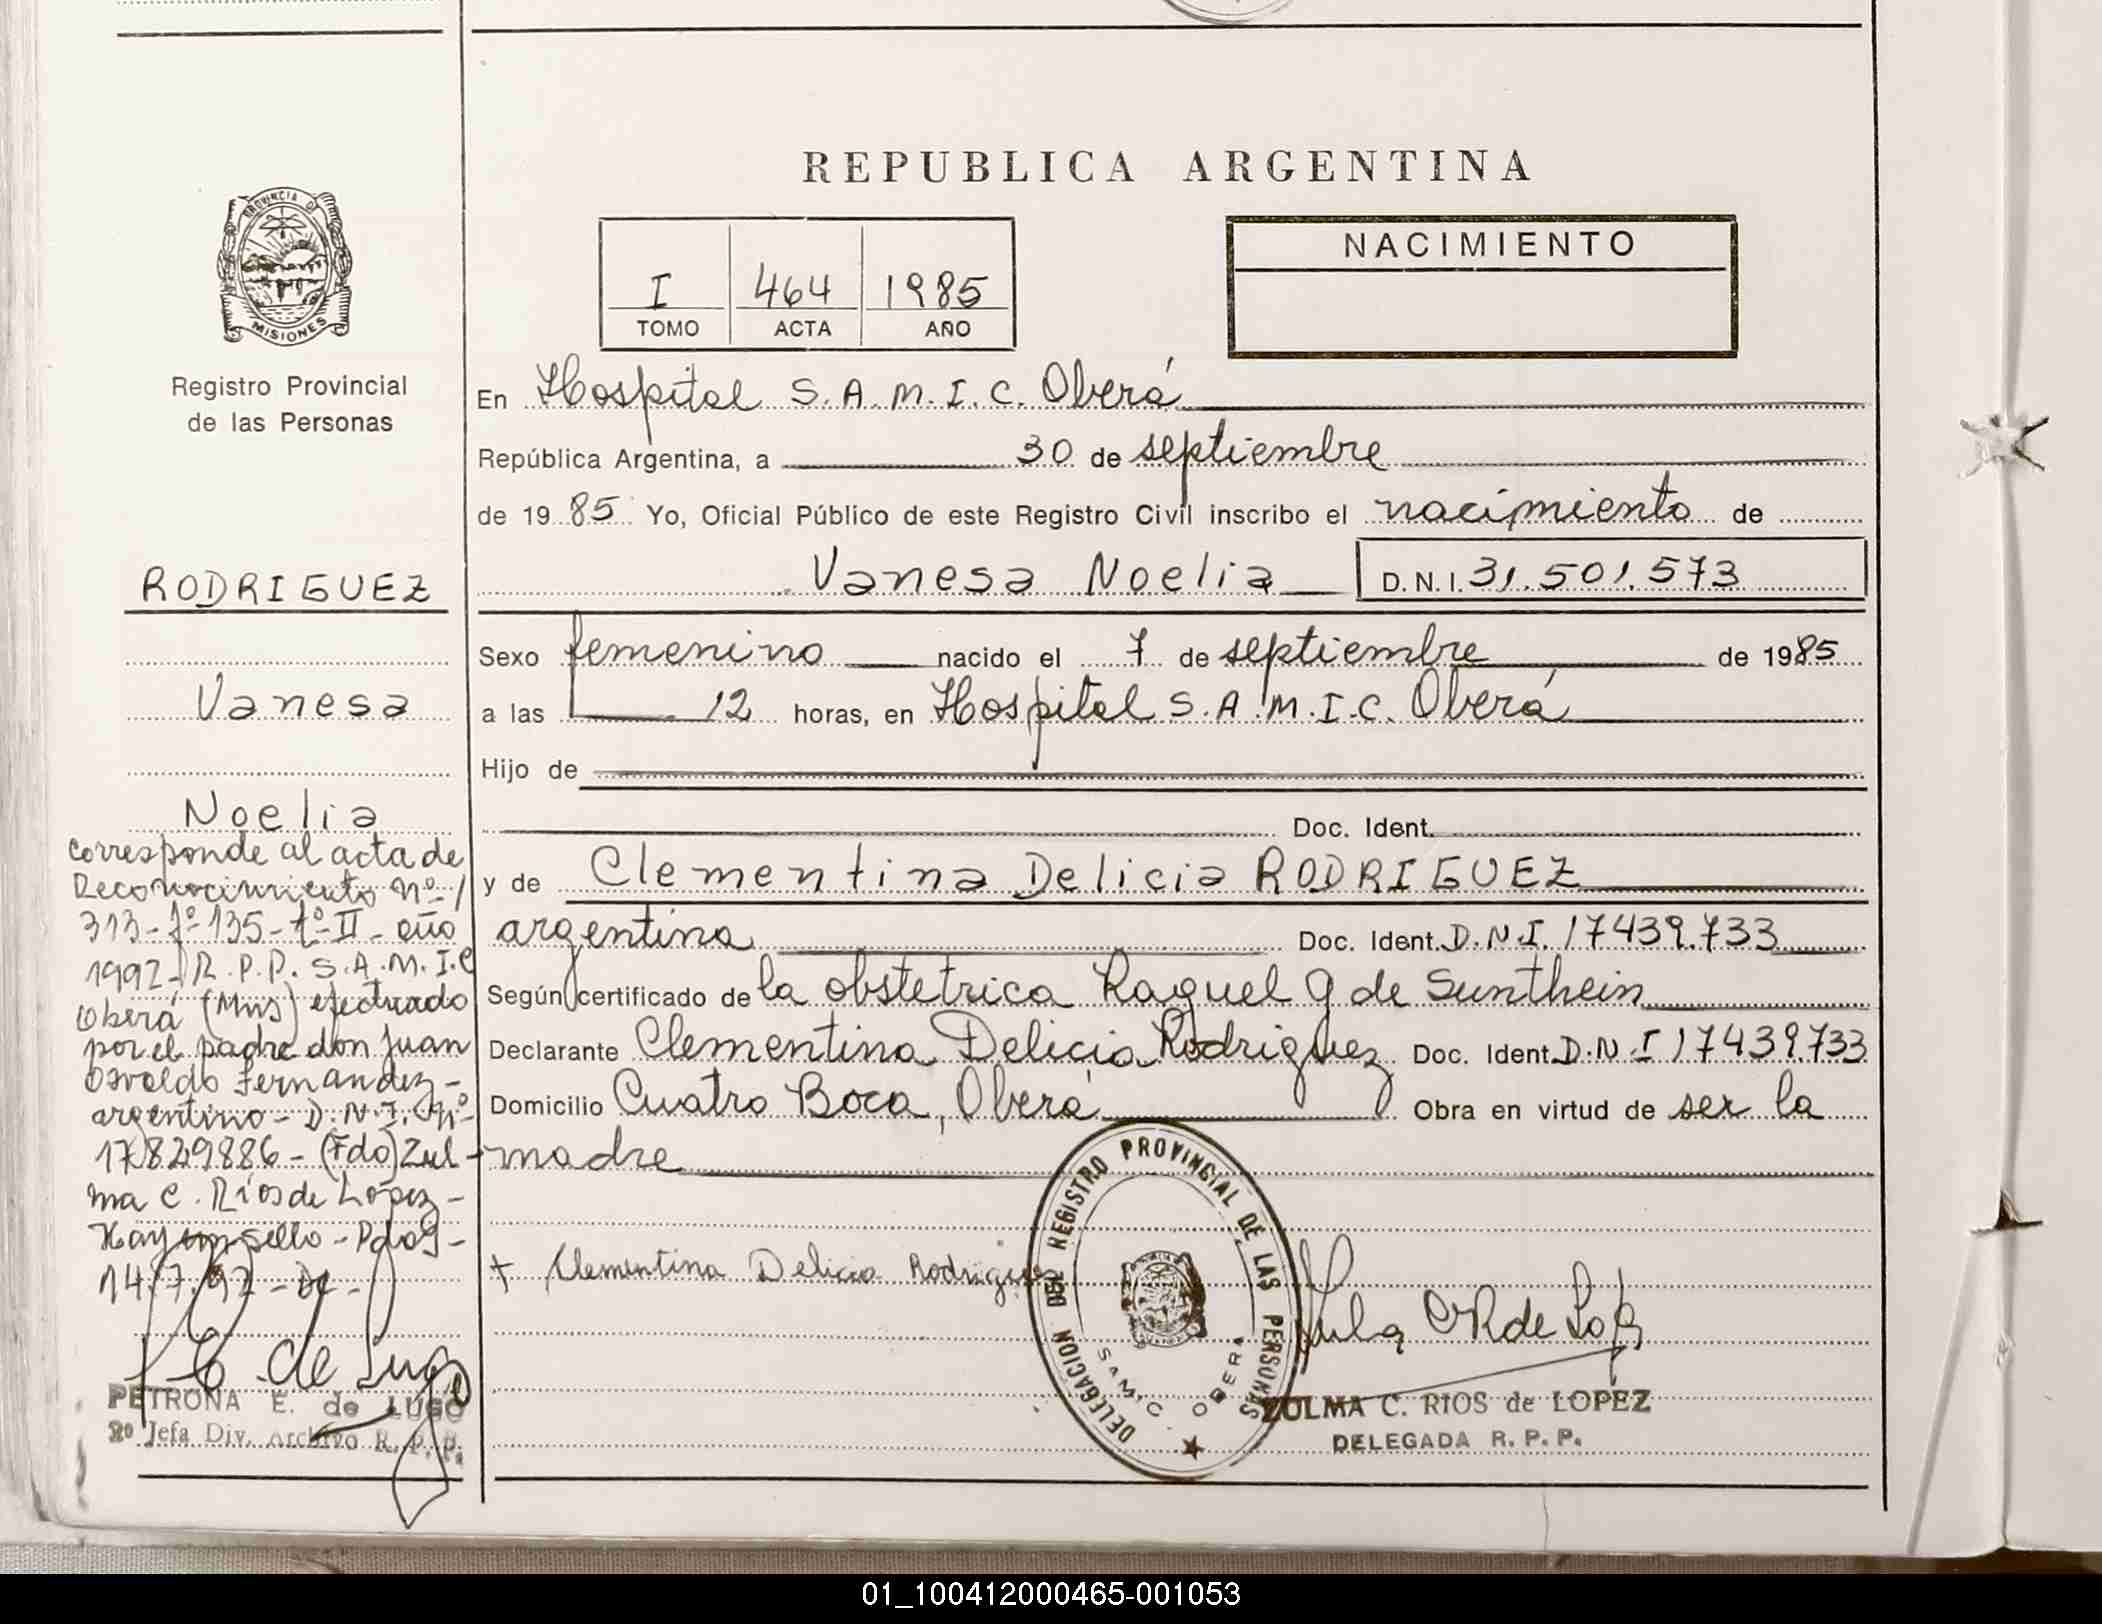 REPUBLICA ARGENTINA
PROVINCIA DE
MISIONES
Registro Provincial
de las Personas
I 464 1985
TOMO ACTA AÑO
NACIMIENTO
En Hospital S.A.M.I.C. Oberá
República Argentina, a 30 de septiembre
de 1985 Yo, Oficial Público de este Registro Civil inscribo el nacimiento de
Vanesa Noelia D.N.I. 31.501.573
Sexo femenino nacido el 7 de septiembre de 1985
a las 12 horas, en Hospital S.A.M.I.C. Oberá
Hijo de
Doc. Ident.
y de Clementina Delicia RODRIGUEZ
argentina Doc. Ident. D.N.I. 17439.733
Según certificado de la obstetrica Raquel G de Sunthein
Declarante Clementina Delicia Rodriguez Doc. Ident. D.N.I 17439.733
Domicilio Cuatro Boca, Oberá Obra en virtud de ser la
madre
+ Clementina Delicia Rodriguez
DELEGACION DEL REGISTRO PROVINCIAL DE LAS PERSONAS
SAMIC. OBERA
ZULMA C. RIOS de LOPEZ
DELEGADA R. P. P.
RODRIGUEZ
Vanesa
Noelia
corresponde al acta de
Reconocimiento Nº
313-fº-135-tº-II-año
1992-R.P.P. S.A.M.I.C
Oberá (Mns) efectuado
por el padre don Juan
Osvaldo Fernandez-
argentino- D.N.I. Nº-
17829886-(Fdo) Zul-
ma C. Ríos de Lopez-
Hay un sello-Pdas-
14.7.92-
PETRONA E. de LUGO
2º Jefa Div. Archivo R. P. P.
01_100412000465-001053